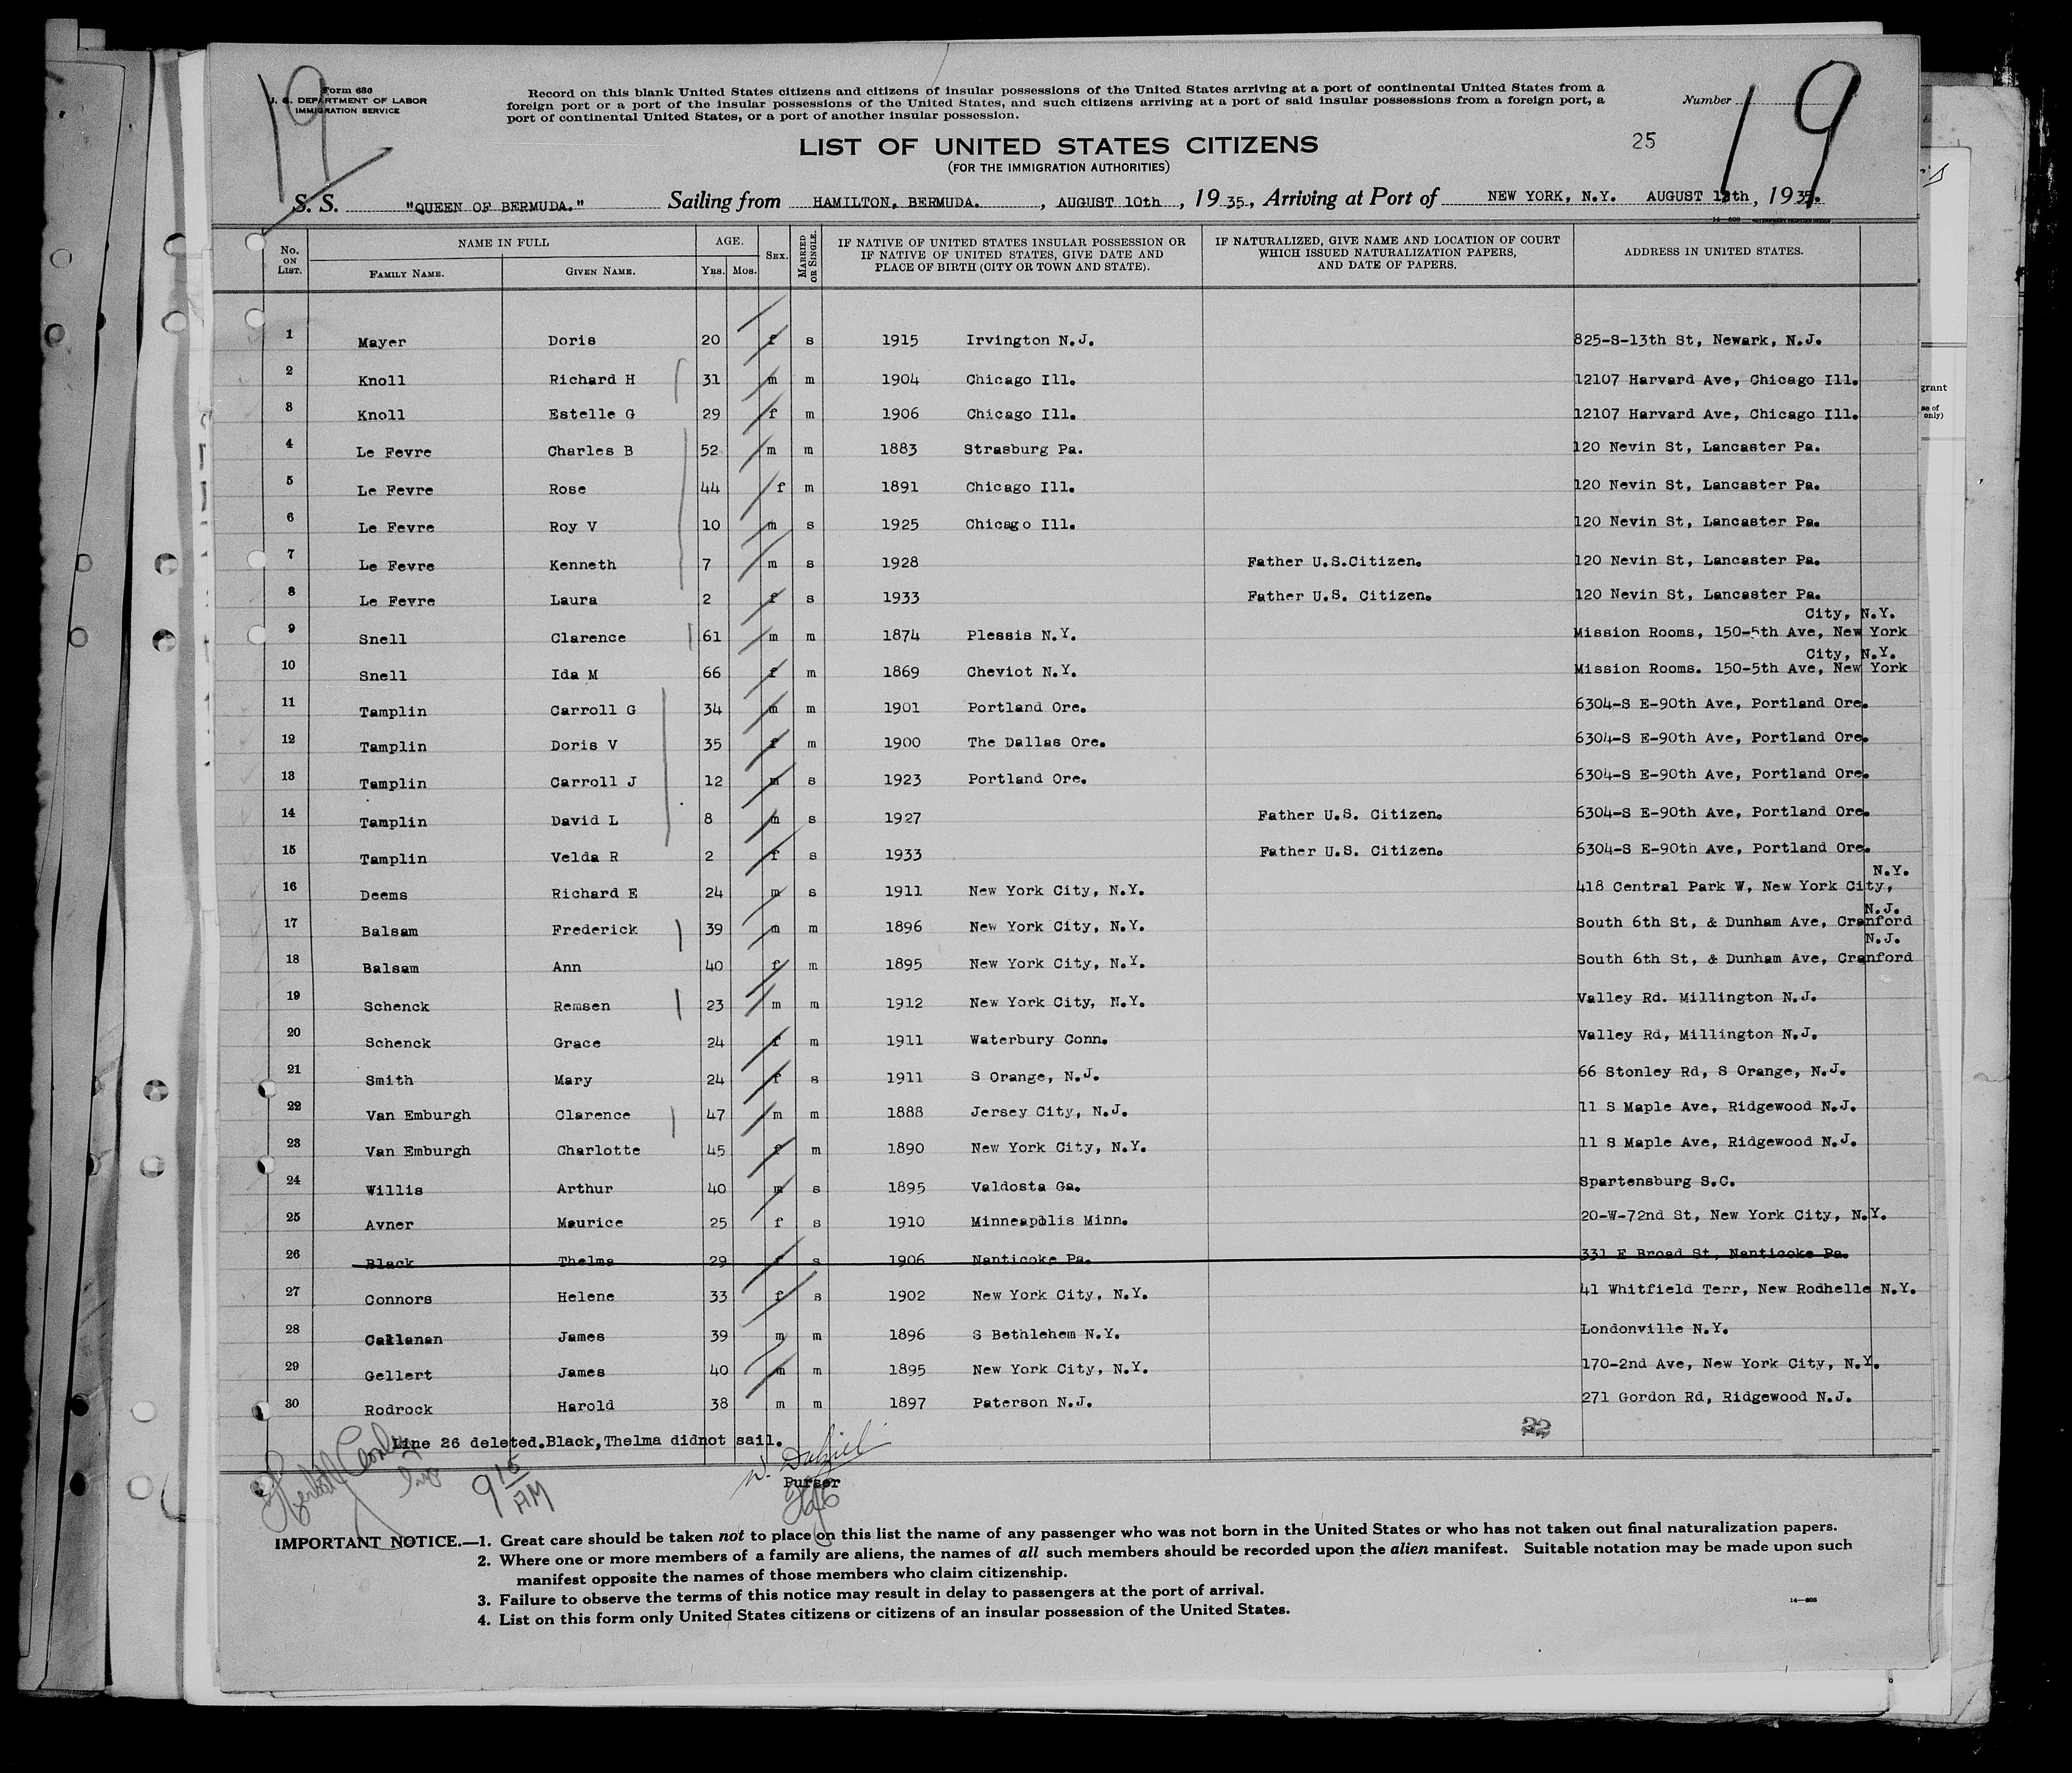 19
Form 630
U. S. DEPARTMENT OF LABOR
IMMIGRATION SERVICE
Record on this blank United States citizens and citizens of insular possessions of the United States arriving at a port of continental United States from a
foreign port or a port of the insular possessions of the United States, and such citizens arriving at a port of said insular possessions from a foreign port, a
port of continental United States, or a port of another insular possession.
Number 19
LIST OF UNITED STATES CITIZENS
(FOR THE IMMIGRATION AUTHORITIES)
25
S. S. "QUEEN OF BERMUDA." Sailing from HAMILTON, BERMUDA. , AUGUST 10th , 19 35, Arriving at Port of NEW YORK, N.Y. AUGUST 12th, 19 35.
No. ON LIST. NAME IN FULL FAMILY NAME. GIVEN NAME. AGE. YRS. MOS. SEX. MARRIED OR SINGLE. IF NATIVE OF UNITED STATES INSULAR POSSESSION OR IF NATIVE OF UNITED STATES, GIVE DATE AND PLACE OF BIRTH (CITY OR TOWN AND STATE). IF NATURALIZED, GIVE NAME AND LOCATION OF COURT WHICH ISSUED NATURALIZATION PAPERS, AND DATE OF PAPERS. ADDRESS IN UNITED STATES.
1 Mayer Doris 20 f s 1915 Irvington N.J. 825-S-13th St, Newark, N.J.
2 Knoll Richard H 31 m m 1904 Chicago Ill. 12107 Harvard Ave, Chicago Ill.
3 Knoll Estelle G 29 f m 1906 Chicago Ill. 12107 Harvard Ave, Chicago Ill.
4 Le Fevre Charles B 52 m m 1883 Strasburg Pa. 120 Nevin St, Lancaster Pa.
5 Le Fevre Rose 44 f m 1891 Chicago Ill. 120 Nevin St, Lancaster Pa.
6 Le Fevre Roy V 10 m s 1925 Chicago Ill. 120 Nevin St, Lancaster Pa.
7 Le Fevre Kenneth 7 m s 1928 Father U.S.Citizen. 120 Nevin St, Lancaster Pa.
8 Le Fevre Laura 2 f s 1933 Father U.S. Citizen. 120 Nevin St, Lancaster Pa.
City, N.Y.
9 Snell Clarence 61 m m 1874 Plessis N.Y. Mission Rooms, 150-5th Ave, New York
City, N.Y.
10 Snell Ida M 66 f m 1869 Cheviot N.Y. Mission Rooms. 150-5th Ave, New York
11 Tamplin Carroll G 34 m m 1901 Portland Ore. 6304-S E-90th Ave, Portland Ore.
12 Tamplin Doris V 35 f m 1900 The Dallas Ore. 6304-S E-90th Ave, Portland Ore.
13 Tamplin Carroll J 12 m s 1923 Portland Ore. 6304-S E-90th Ave, Portland Ore.
14 Tamplin David L 8 m s 1927 Father U.S. Citizen. 6304-S E-90th Ave, Portland Ore.
15 Tamplin Velda R 2 f s 1933 Father U.S. Citizen. 6304-S E-90th Ave, Portland Ore.
N.Y.
16 Deems Richard E 24 m s 1911 New York City, N.Y. 418 Central Park W, New York City,
N.J.
17 Balsam Frederick 39 m m 1896 New York City, N.Y. South 6th St, & Dunham Ave, Cranford
N.J.
18 Balsam Ann 40 f m 1895 New York City, N.Y. South 6th St, & Dunham Ave, Cranford
19 Schenck Remsen 23 m m 1912 New York City, N.Y. Valley Rd. Millington N.J.
20 Schenck Grace 24 f m 1911 Waterbury Conn. Valley Rd, Millington N.J.
21 Smith Mary 24 f s 1911 S Orange, N.J. 66 Stonley Rd, S Orange, N.J.
22 Van Emburgh Clarence 47 m m 1888 Jersey City, N.J. 11 S Maple Ave, Ridgewood N.J.
23 Van Emburgh Charlotte 45 f m 1890 New York City, N.Y. 11 S Maple Ave, Ridgewood N.J.
24 Willis Arthur 40 m s 1895 Valdosta Ga. Spartensburg S.C.
25 Avner Maurice 25 f s 1910 Minneapolis Minn. 20-W-72nd St, New York City, N.Y.
26 Black Thelma 29 f s 1906 Nanticoke Pa. 331 E Broad St, Nanticoke Pa.
27 Connors Helene 33 f s 1902 New York City, N.Y. 41 Whitfield Terr, New Rochelle N.Y.
28 Callanan James 39 m m 1896 S Bethlehem N.Y. Londonville N.Y.
29 Gellert James 40 m m 1895 New York City, N.Y. 170-2nd Ave, New York City, N.Y.
30 Rodrock Harold 38 m m 1897 Paterson N.J. 271 Gordon Rd, Ridgewood N.J.
22
Line 26 deleted.Black,Thelma didnot sail.
W. Dalziel
Purser
9 15 AM
IMPORTANT NOTICE.—1. Great care should be taken not to place on this list the name of any passenger who was not born in the United States or who has not taken out final naturalization papers.
2. Where one or more members of a family are aliens, the names of all such members should be recorded upon the alien manifest. Suitable notation may be made upon such
manifest opposite the names of those members who claim citizenship.
3. Failure to observe the terms of this notice may result in delay to passengers at the port of arrival.
4. List on this form only United States citizens or citizens of an insular possession of the United States.